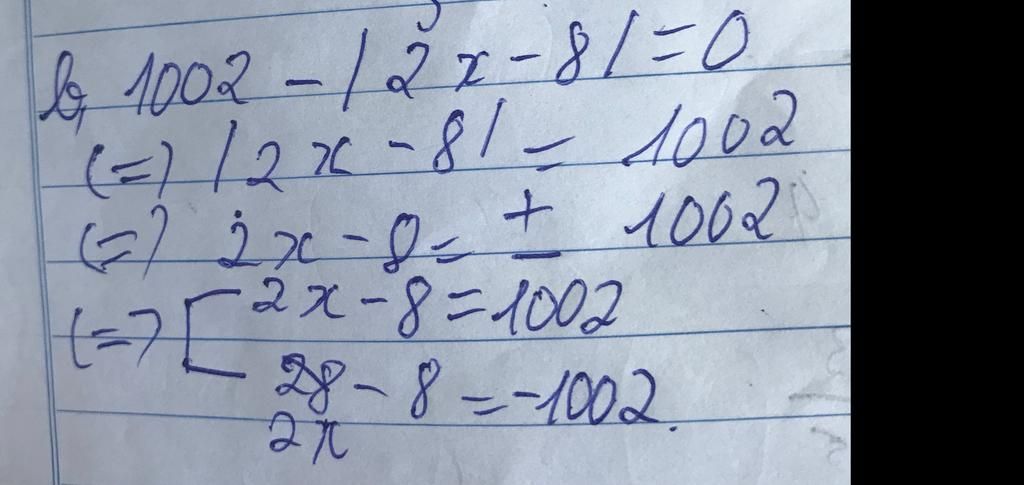 b, 1002 - |2x - 8| = 0
(=) |2x - 8| = 1002
(=) 2x - 8 = ± 1002
(=) [ 2x - 8 = 1002
28 - 8 = -1002.
2x